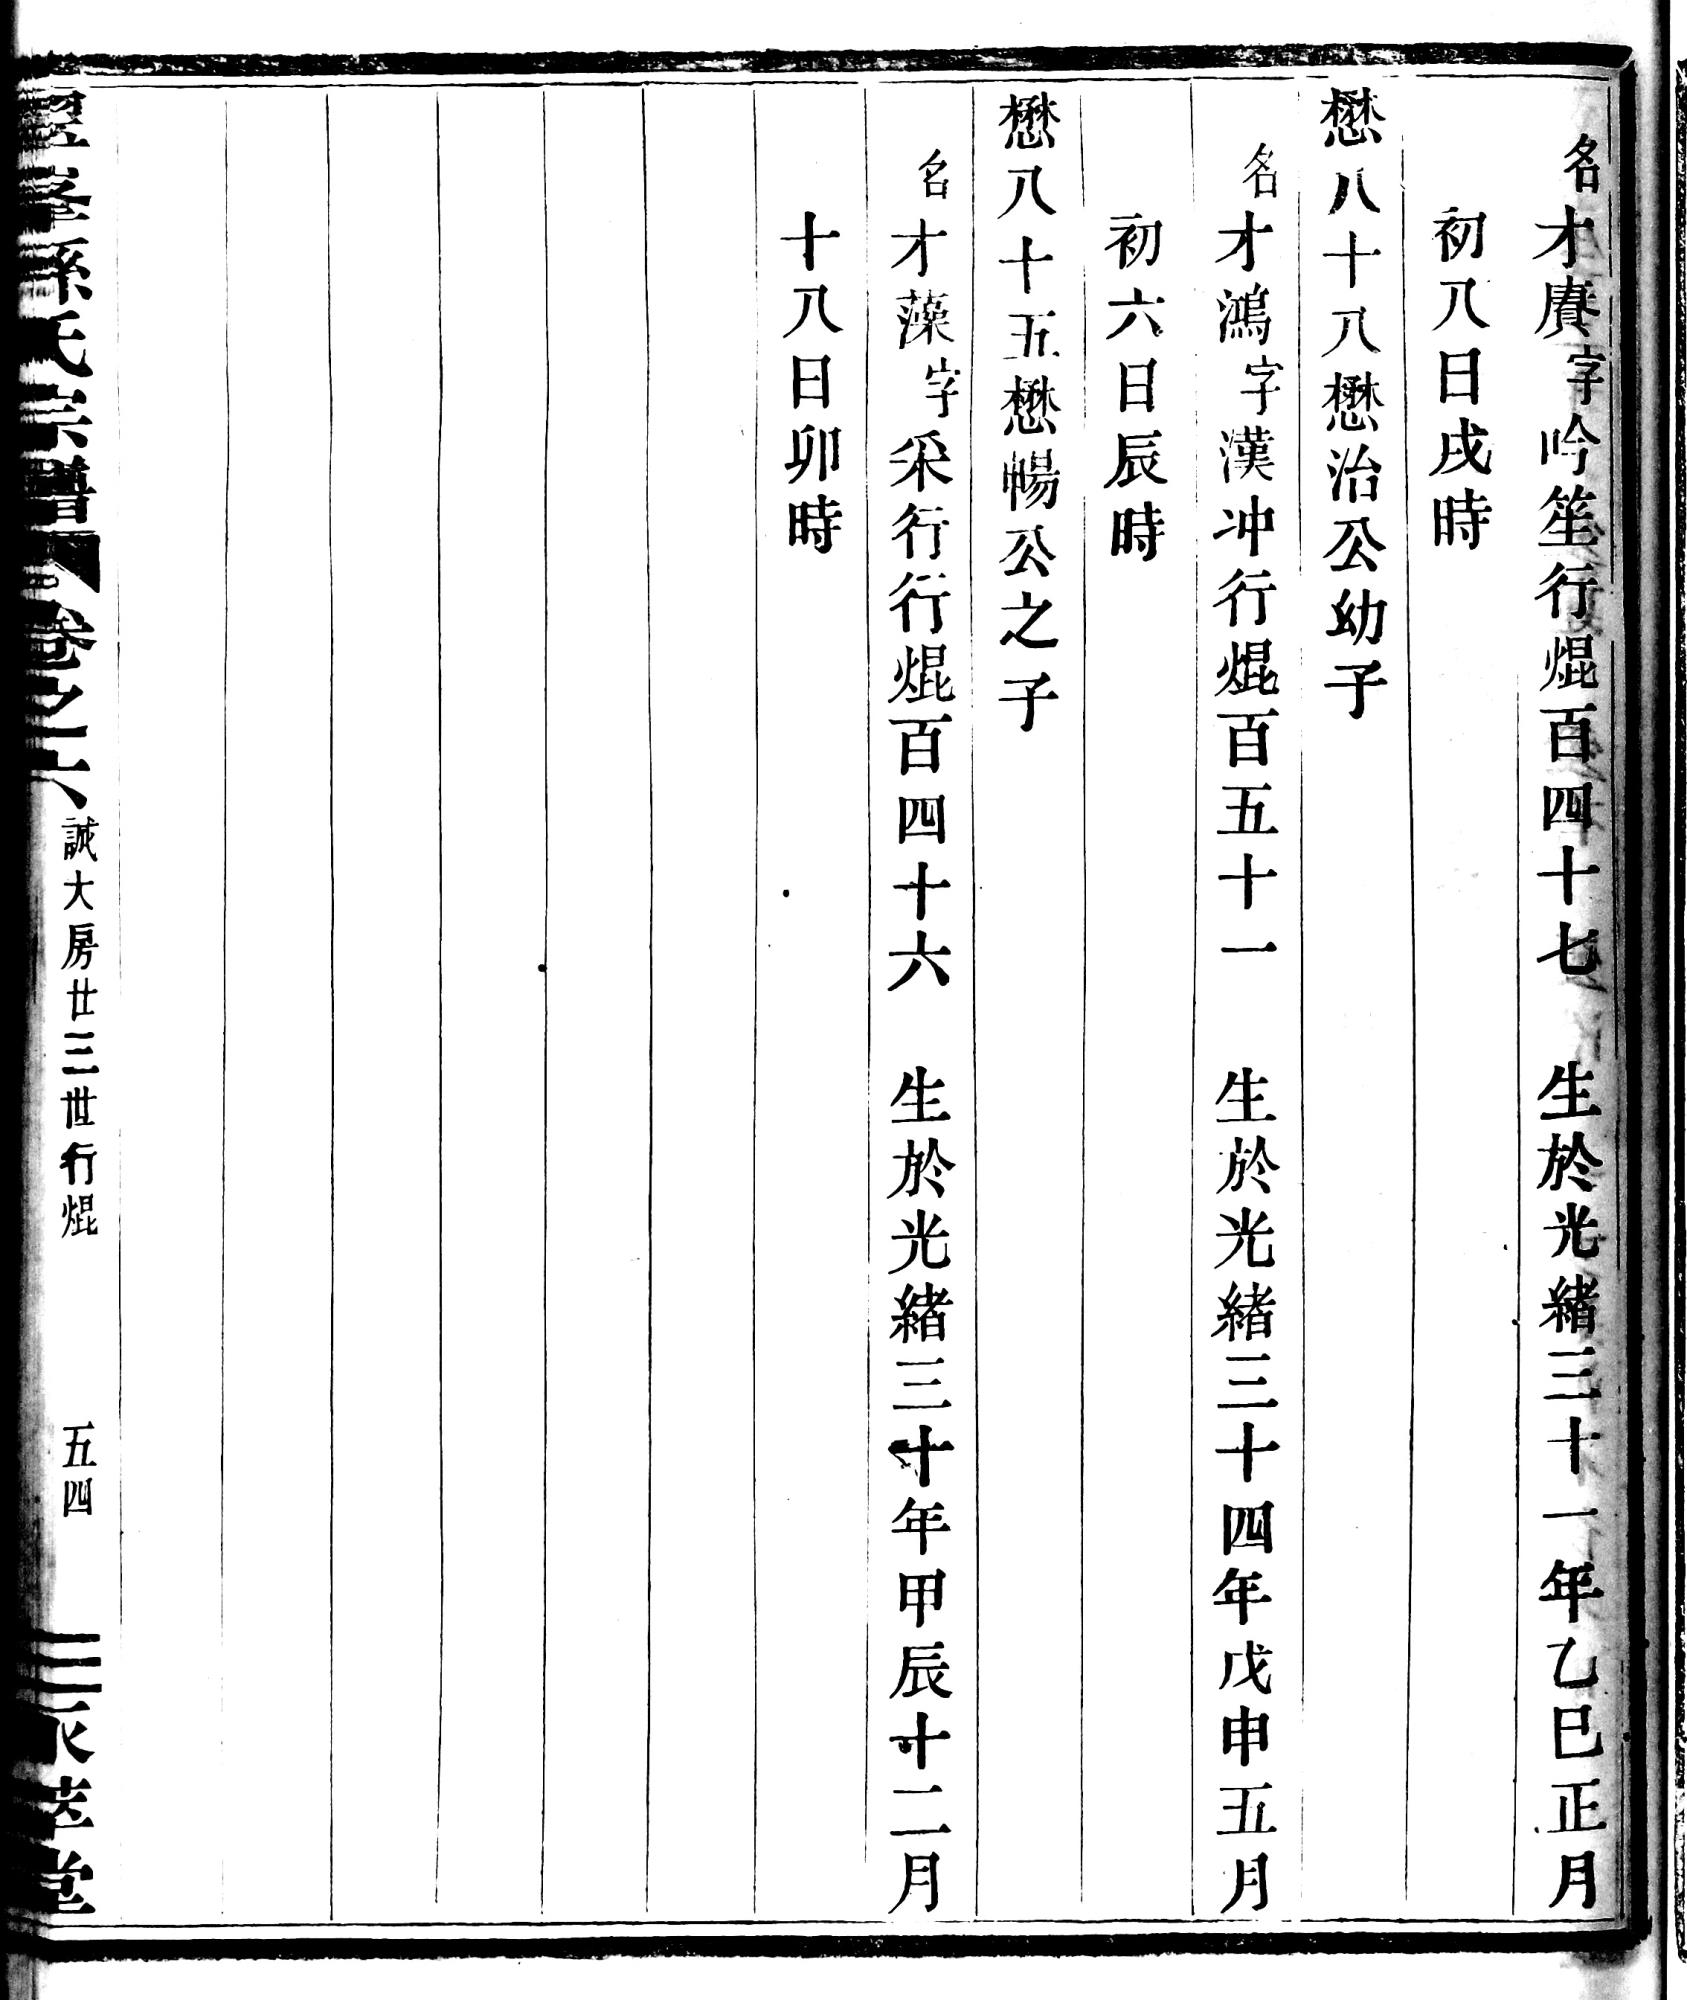 名才賡字吟笙行焜百四十七　生於光緒三十一年乙巳正月
初八日戌時
懋八十八懋治公幼子
名才鴻字漢冲行焜百五十一　生於光緒三十四年戊申五月
初六日辰時
懋八十五懋暢公之子
名才藻字采行行焜百四十六　生於光緒三十年甲辰十二月
十八日卯時
孫氏宗譜　卷之六　誠大房廿三世行焜　五四　萃堂